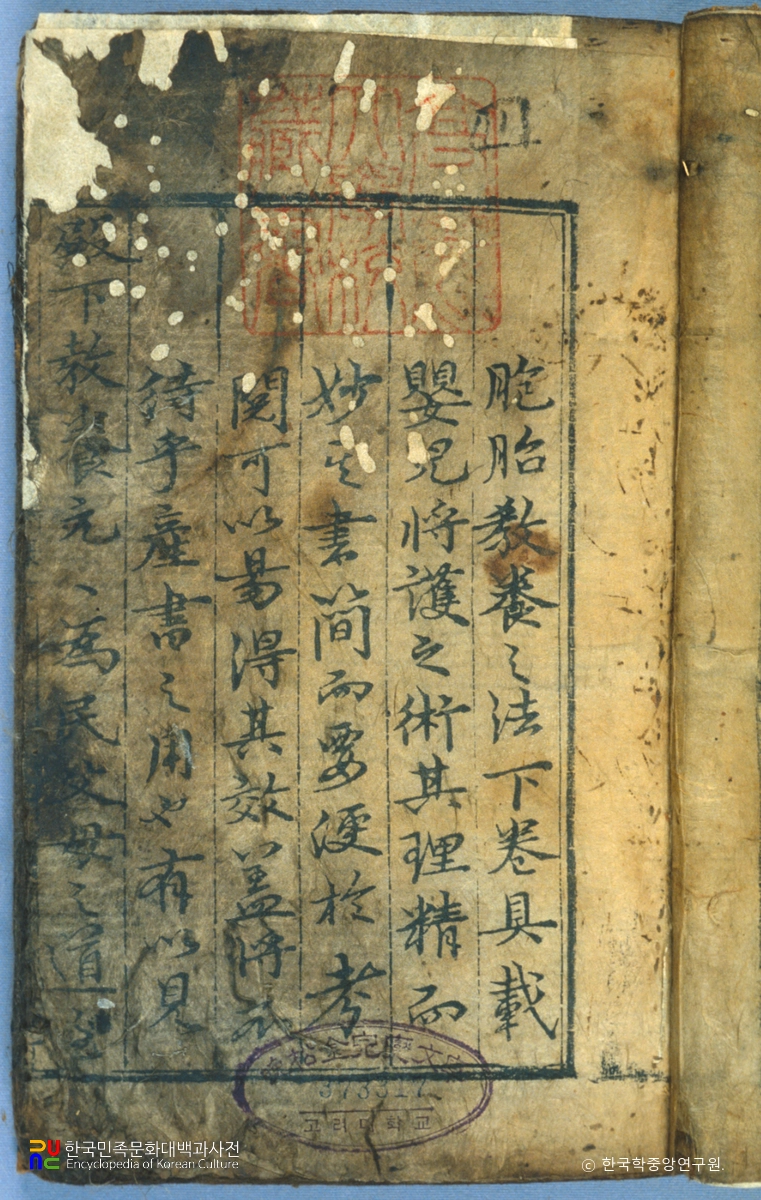 胞胎教養之法下卷具載
嬰兒將護之術其理精而
妙其書簡而要便於考
閱可以易得其效盖將以
待乎產書之用也有以見
殿下教養元〻爲民父母之道至
373317
고려대학교
한국민족문화대백과사전
Encyclopedia of Korean Culture
ⓒ 한국학중앙연구원.